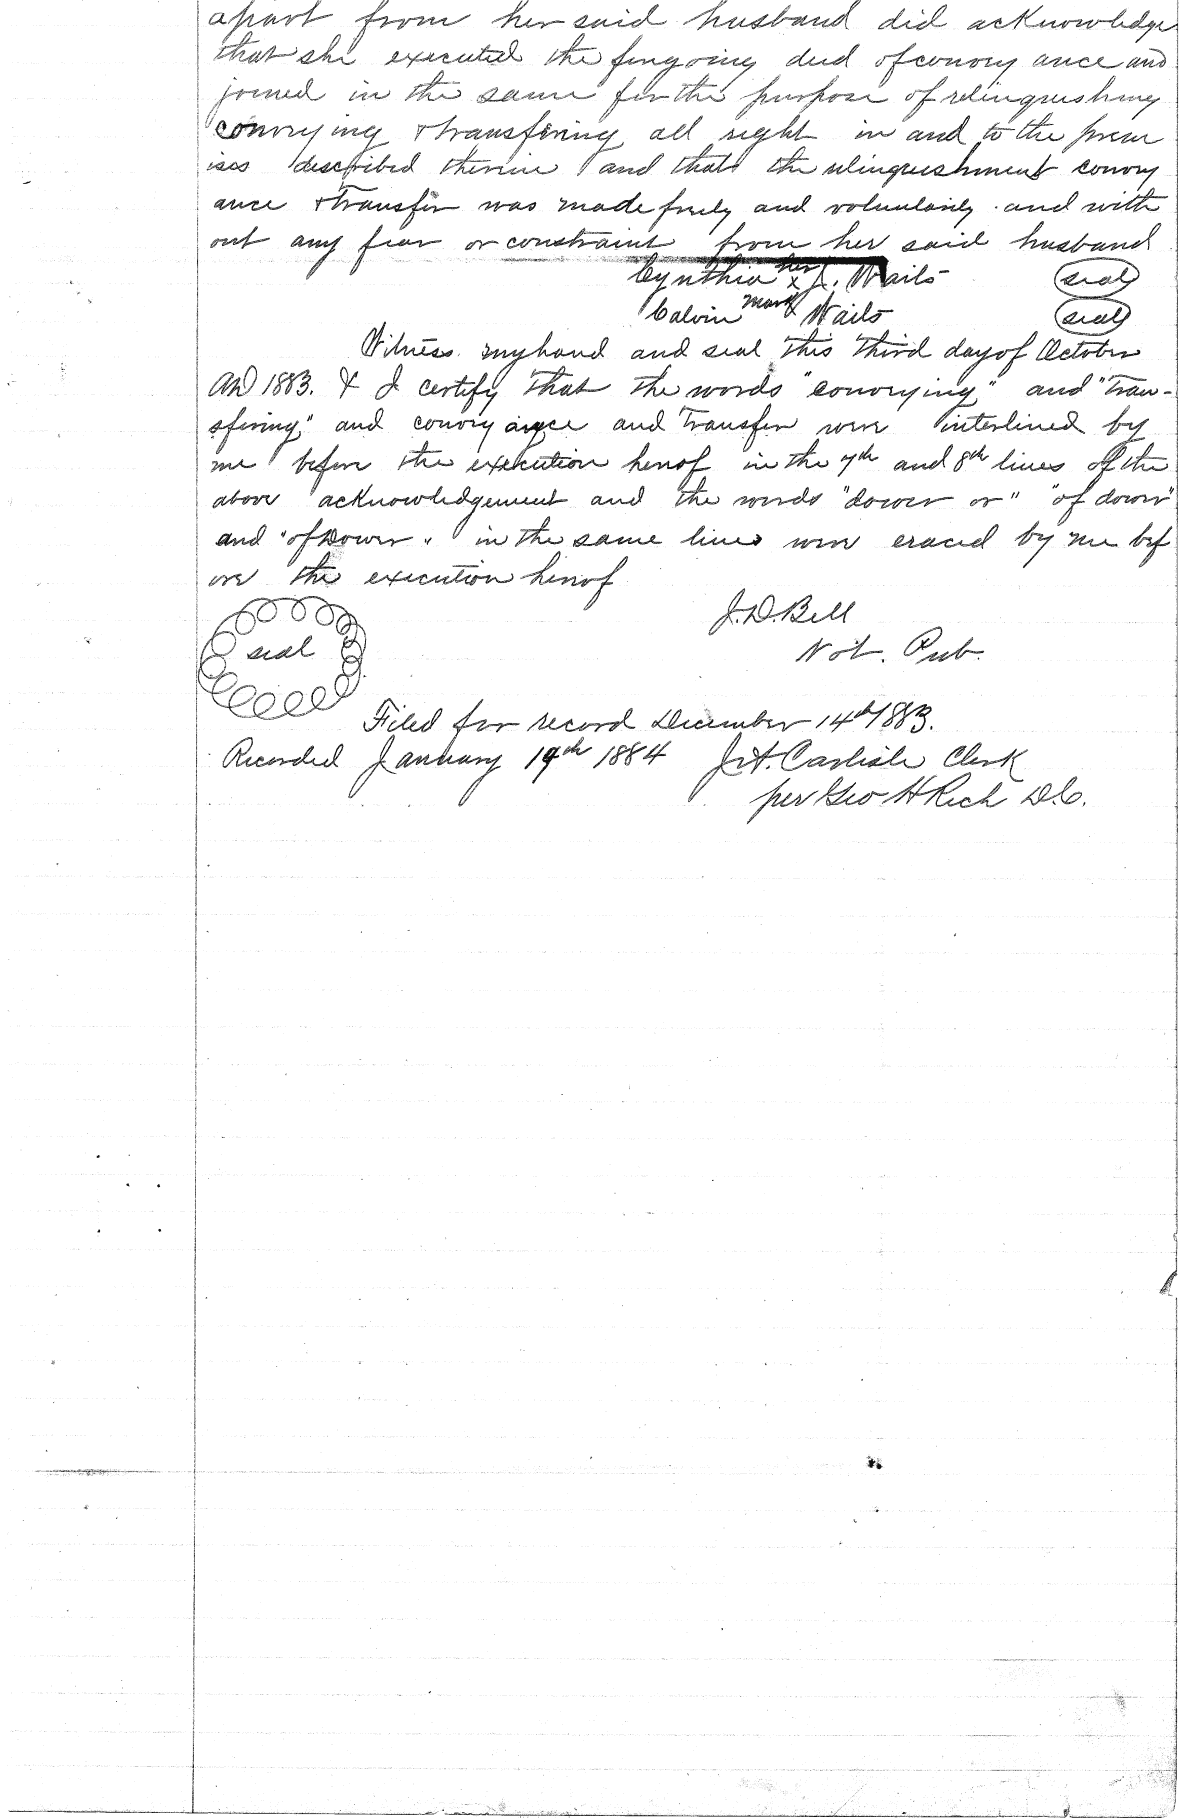 apart from her said husband did acknowledge
that she executed the forgoing deed of convey ance and
joined in the same for the purpose of relinquishing
conveying & transfering all right in and to the prem
ises described therein and that the relinquishment convey
ance & transfer was made freely and voluntarily and with
out any fear or constraint from her said husband
Cynthia her x J. Wails seal
Calvin mark Wails seal
Witness my hand and seal this third day of October
AD 1883. & I certify that the words "conveying" and "tran-
sfiring" and convey ance and transfer were interlined by
me before the execution hereof in the 7th and 8th lines of the
above acknowledgement and the words "dower or" "of dower"
and "of Dower" in the same lines were eraced by me bef
ore the execution hereof
J. D. Bell
seal
Not. Pub.
Filed for record December 14th 1883.
Recorded January 19th 1884 J. A. Carlisle Clerk
per Geo H Rich D.C.